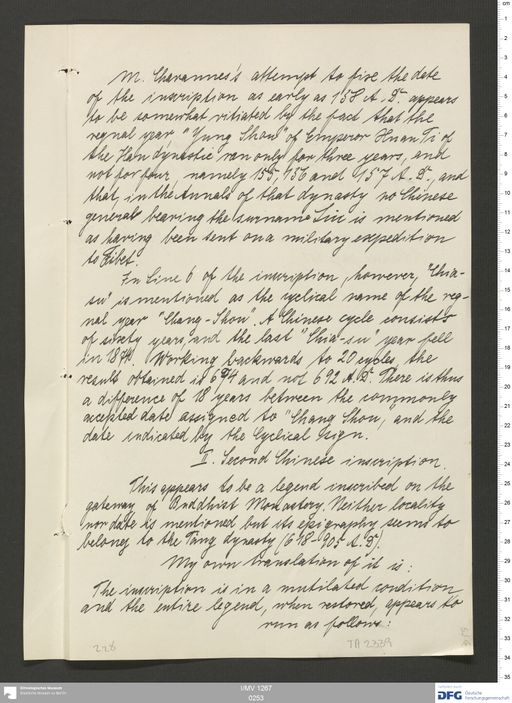 M. Chavannes's attempt to fixe the date
of the inscription as early as 158 A. D. appears
to be somewhat vitiated by the fact that the
regnal year "Yung Shou" of Emperor Huan Ti of
the Han dynastie ran only for three years, and
not for four, namely 155, 156 and 157 A. D., and
that, in the Annals of that dynasty no Chinese
general bearing the surname Liu is mentioned
as having been sent on a military expedition
to Tibet.
In line 6 of the inscription, however, "Chia-
su" is mentioned as the cyclical name of the reg-
nal year "Chang-Shou". A Chinese cycle consists
of sixty years, and the last "Chia-su" year fell
in 1874. Working backwards to 20 cycles, the
results obtained is 674 and not 692 A. D. There is thus
a difference of 18 years between the commonly
accepted date assigned to "Chang Shou", and the
date indicated by the Cyclical sign.
II. Second Chinese inscription.
This appears to be a legend inscribed on the
gateway of Buddhist Monastery. Neither locality
nor date is mentioned but its epigraphy seems to
belong to the Tang dynasty (618-905 A. D.)
My own translation of it is:
The inscription is in a mutilated condition,
and the entire legend, when restored, appears to
run as follows:
226
TA 2339
Ethnologisches Museum
Staatliche Museen zu Berlin
I/MV 1267
0253
gefördert durch
DFG Deutsche
Forschungsgemeinschaft
cm
1
2
3
4
5
6
7
8
9
10
11
12
13
14
15
16
17
18
19
20
21
22
23
24
25
26
27
28
29
30
31
32
33
34
35